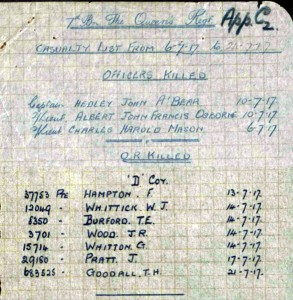 7th Bn The Queen's Regt App C2
CASUALTY LIST FROM 6-7-17 to 21-7-17
OFFICERS KILLED
Captain HEDLEY JOHN A'BEAR 10-7-17.
2/Lieut. ALBERT JOHN FRANCIS OSBORNE 10-7-17.
2/Lieut CHARLES HAROLD MASON 6-7-17
O.R. KILLED
'D' Coy.
37753 Pte HAMPTON. F. 13-7-17.
12049 - WHITTICK W.J. 14-7-17.
8350 - BURFORD. T.E. 14-7-17.
3701 - WOOD. J.R. 14-7-17.
15714 - WHITTON. G. 14-7-17.
29150 - PRATT. J. 17-7-17.
683525 - GOODALL. T.H. 21-7-17.